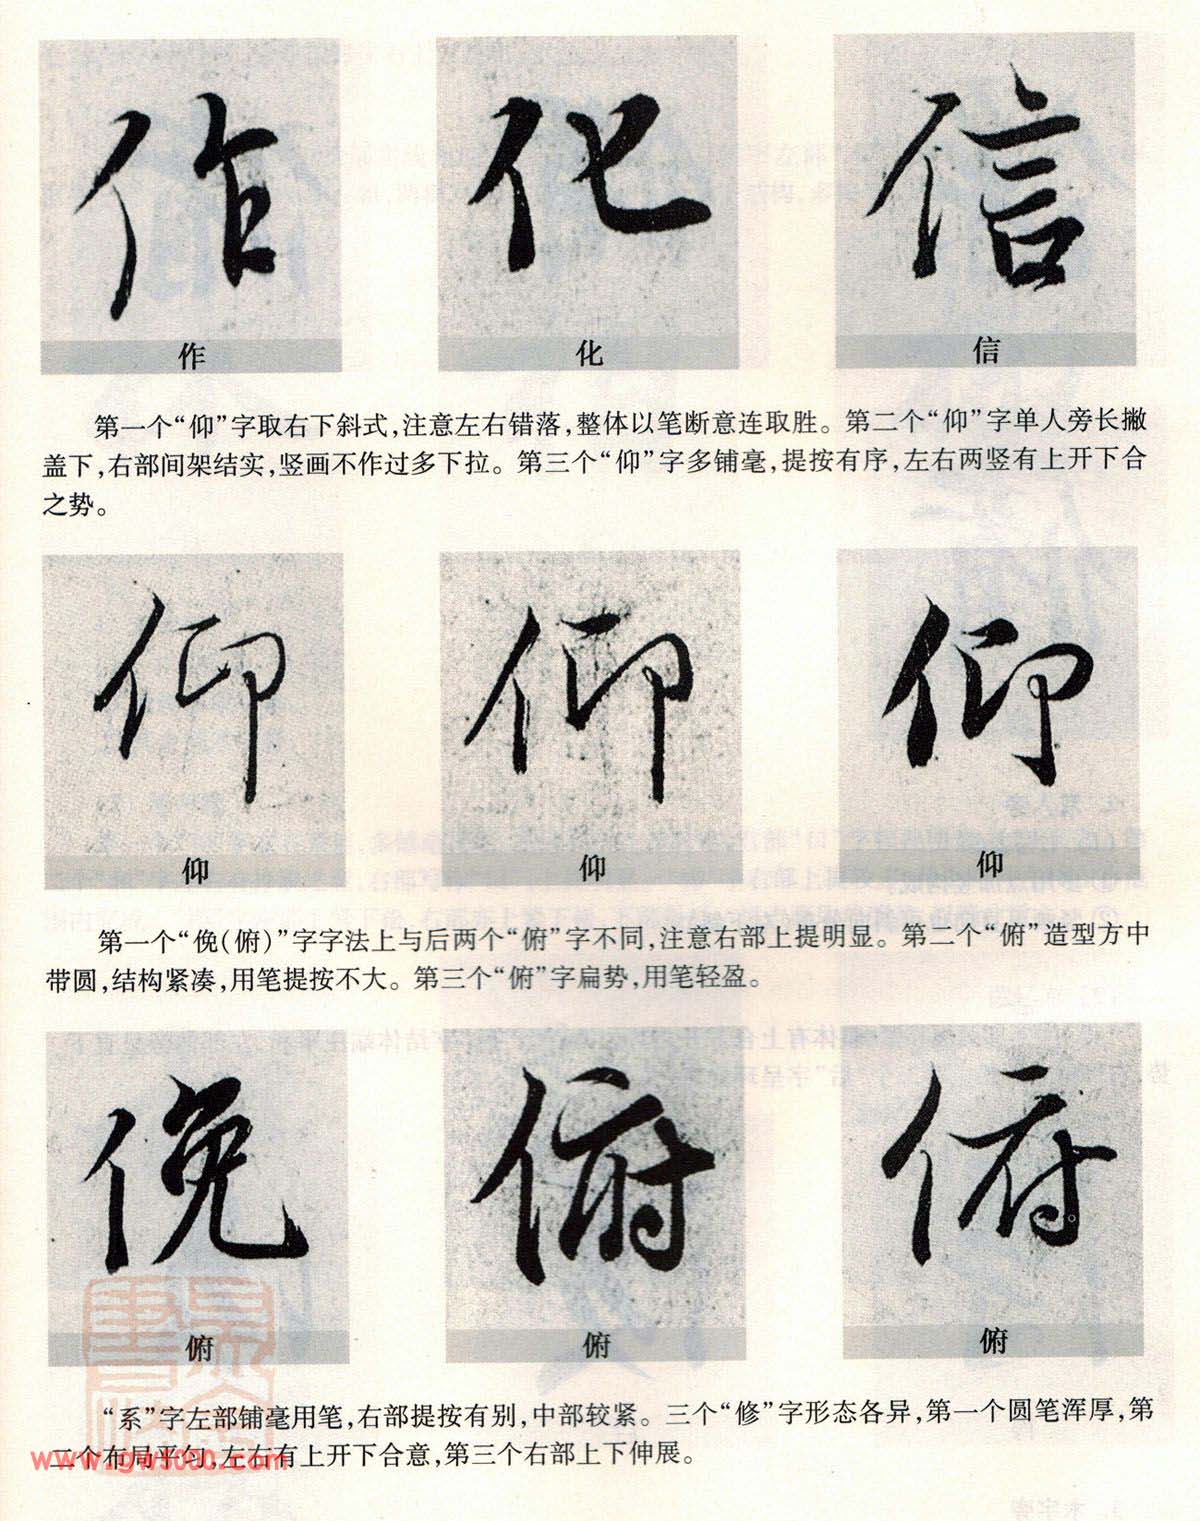 作 化 信
作 化 信
第一个“仰”字取右下斜式,注意左右错落,整体以笔断意连取胜。第二个“仰”字单人旁长撇
盖下,右部间架结实,竖画不作过多下拉。第三个“仰”字多铺毫,提按有序,左右两竖有上开下合
之势。
仰 仰 仰
仰 仰 仰
第一个“俛(俯)”字字法上与后两个“俯”字不同,注意右部上提明显。第二个“俯”造型方中
带圆,结构紧凑,用笔提按不大。第三个“俯”字扁势,用笔轻盈。
俛 俯 俯
俯 俯 俯
“系”字左部铺毫用笔,右部提按有别,中部较紧。三个“修”字形态各异,第一个圆笔浑厚,第
二个布局平匀,左右有上开下合意,第三个右部上下伸展。
www.gw5000.com